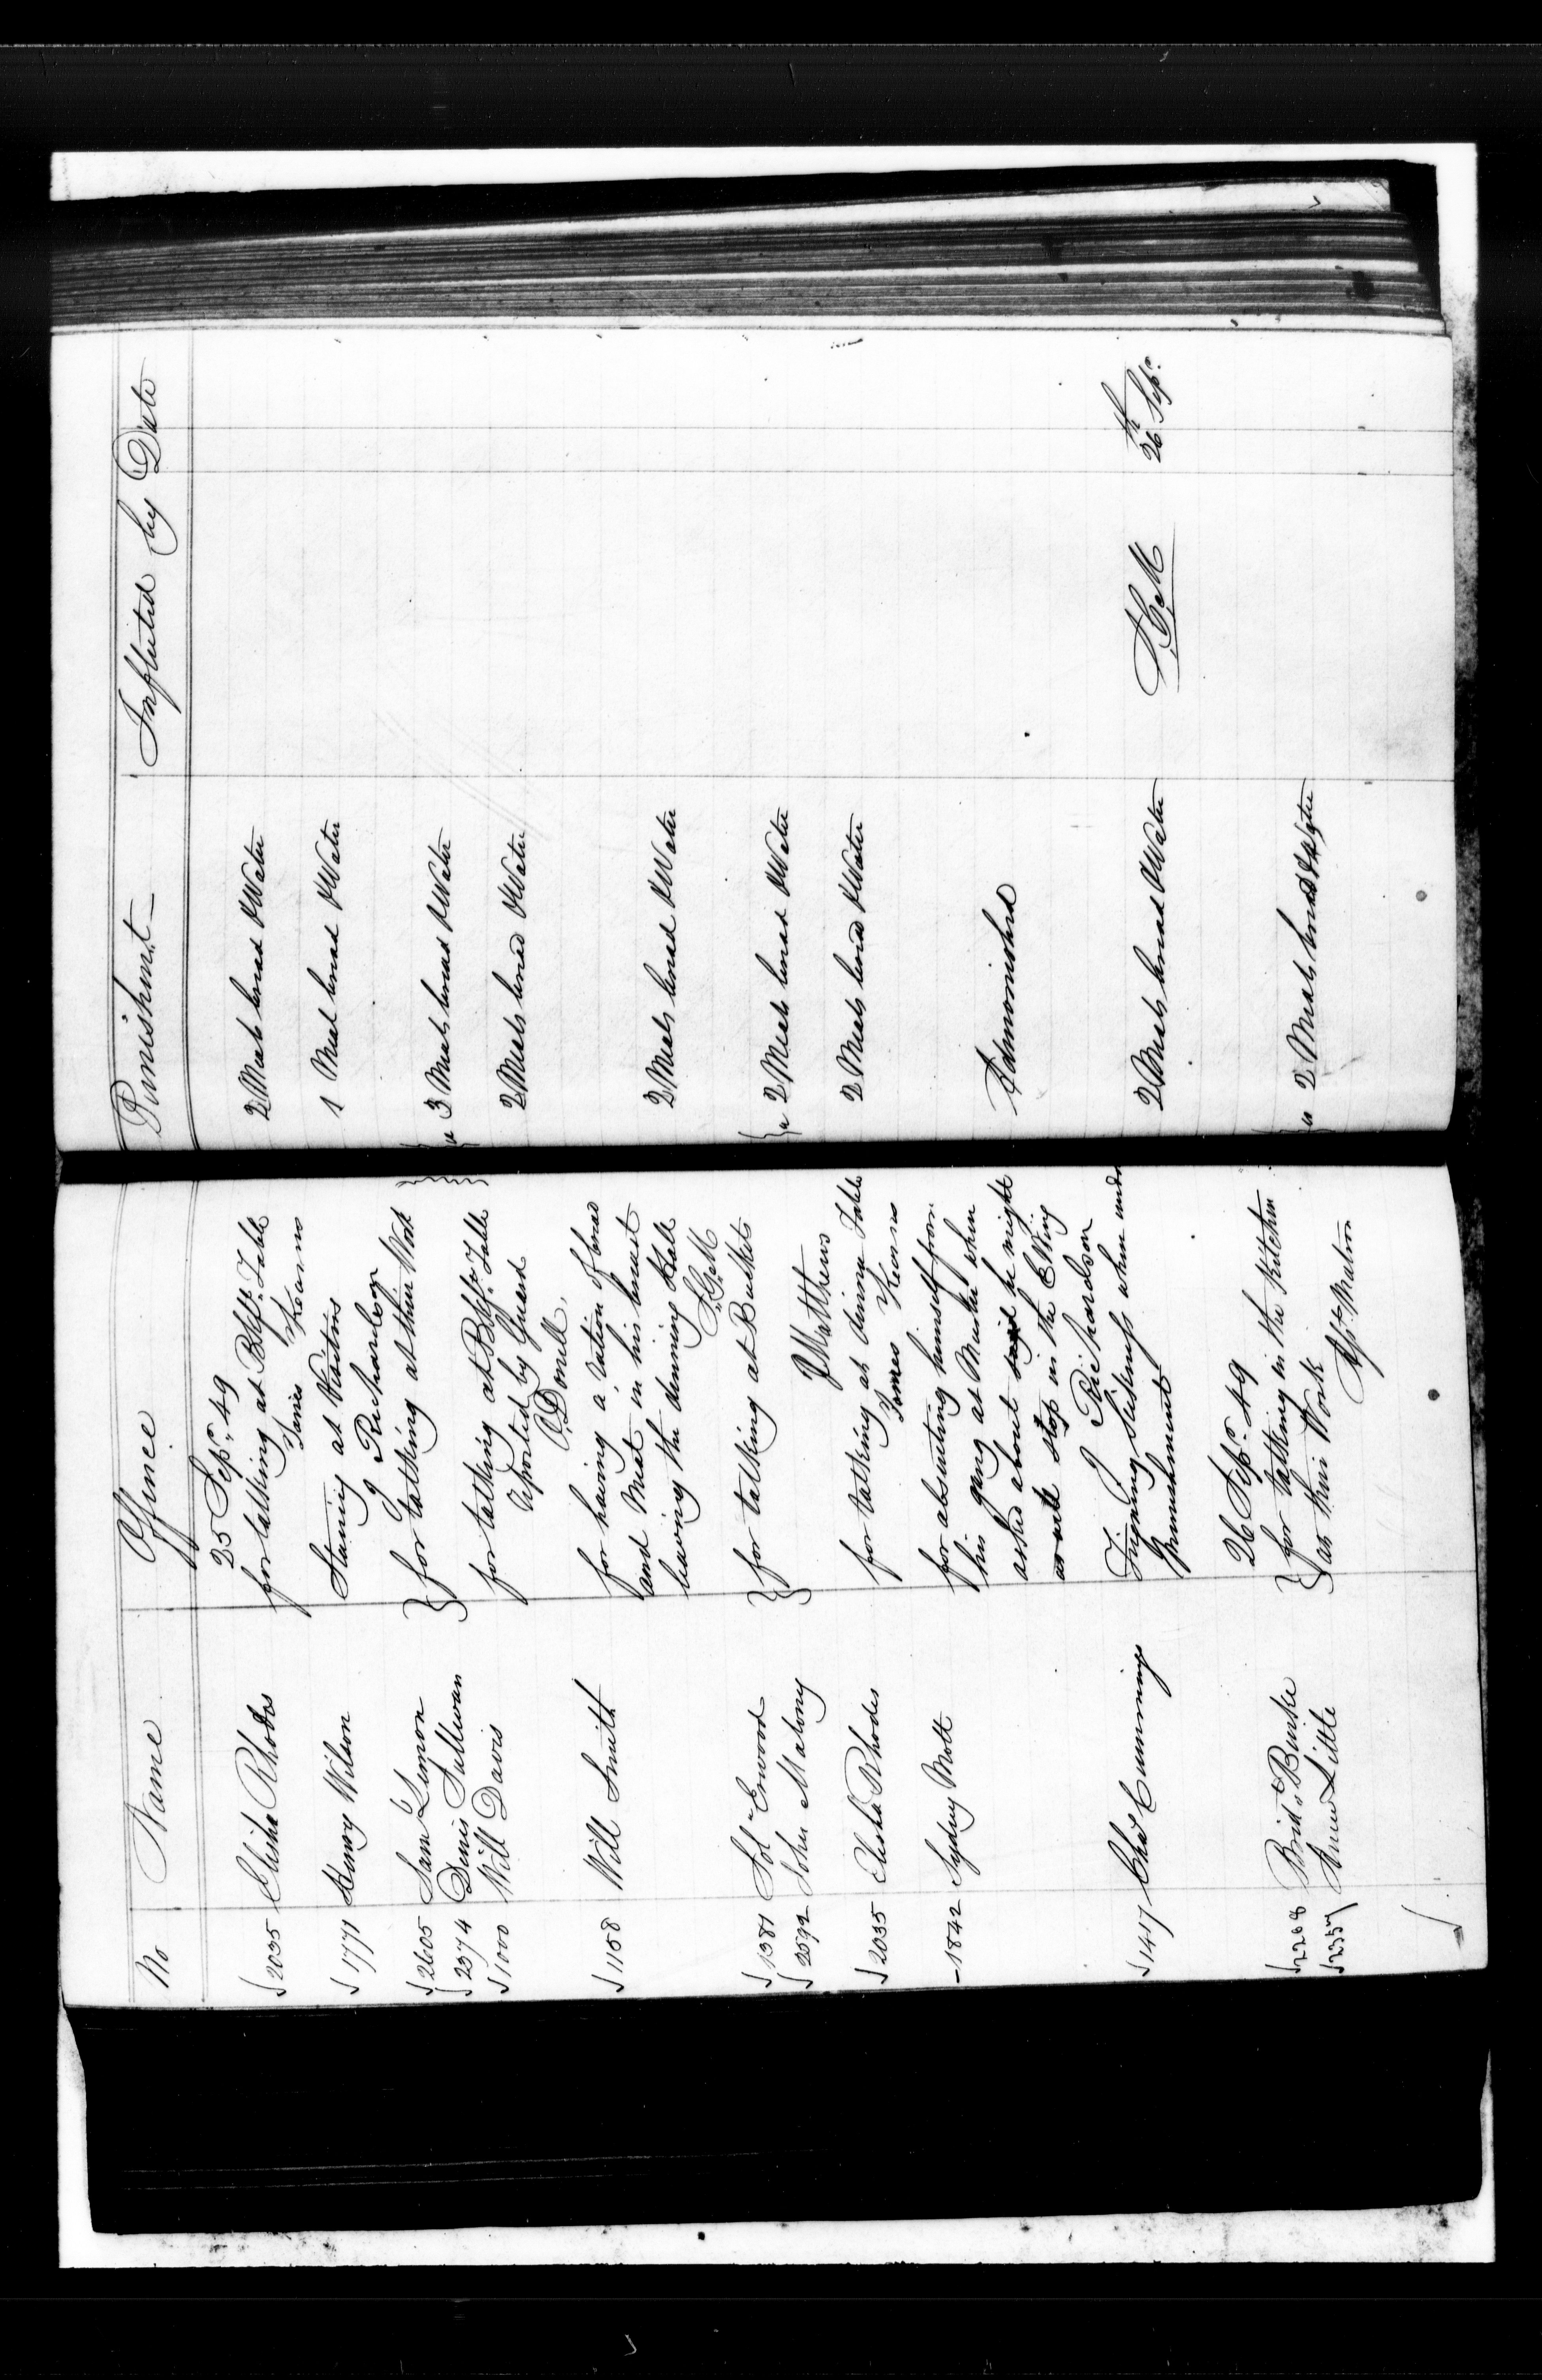 No Name Offence Punishment Inflicted by Date
25 Sepr. 49
√2035 Elisha Rhodes for talking at Bkft. Table 2 Meals bread & Water
James Kearns
√1771 Henry Wilson Staring at Visitors 1 Meal bread & Water
J Richardson
√2605 Sam Lemon } for talking at their Work } a 3 Meals bread & Water
√2374 Denis Sullivan
√1000 Will Davis for talking at Bkft. Table 2 Meals bread & Water
reported by Guard
O.Donell.
√1158 Will Smith for having a ration of bread
and Meat in his breast 2 Meals bread & Water
leaving the dinning Hall
√1381 Sol Erwood } for talking at Buckets } a 2 Meals bread & Water
√2592 John Malony
J Matthews
√2035 Elisha Rhodes for talking at dinner Table 2 Meals bread & Water
James Kearns
-1842 Sydney Mott for absenting himself from
his gang at Muster when Admonished
asked about said he might
as well stop in the E Wing
J Richardson
√1447 Chas Cummings Feigning Sickness when under 2 Meals bread & Water 26th Sepr.
Punishment
26 Sepr. 49
√2268 Bridt Burke } for talking in the Kitchen } a 2 Meals bread & Water
√2357 Ann Little at their Work
Ast Matron